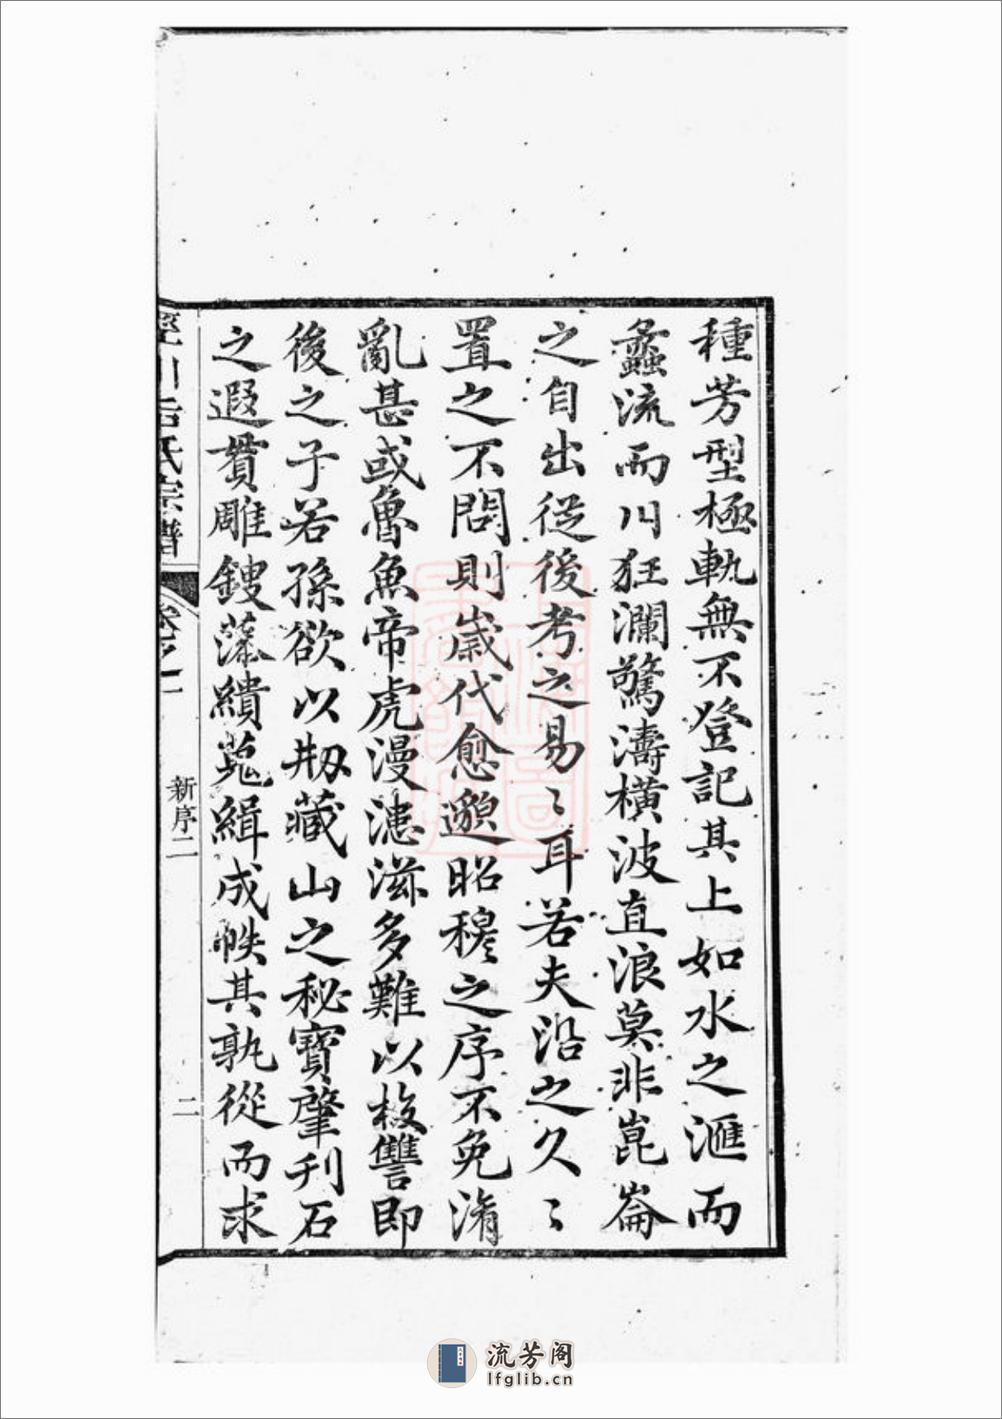 種芳型極軌無不登記其上如水之滙而
蠡流而川狂瀾驚濤橫波直浪莫非崑崙
之自出從後考之易〻耳若夫沿之久〻
置之不問則歲代愈邈昭穆之序不免淆
亂甚或魯魚帝虎漫漶滋多難以校讐即
後之子若孫欲以刱藏山之秘寶肇刋石
之遐貫雕鎪藻繢蒐緝成帙其孰從而求
川 氏宗譜
卷之一
新序二
二
流芳阁
lfglib.cn